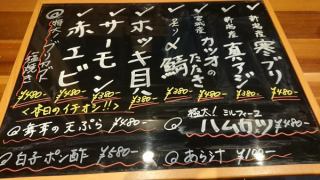 新潟産 寒ブリ ¥480-
新潟産 真アジ ¥380-
宮城産 カツオのたたき ¥380-
炙り〆鯖 ¥380-
ホッキ貝 ¥480-
サーモン ¥380-
赤エビ ¥480-
特大！ブリカマ塩焼き ¥480-
<本日のイチオシ!!>
極太！ミルフィーユハムカツ ¥480-
舞茸の天ぷら ¥480-
白子ポン酢 ¥580-
あら汁 ¥100-